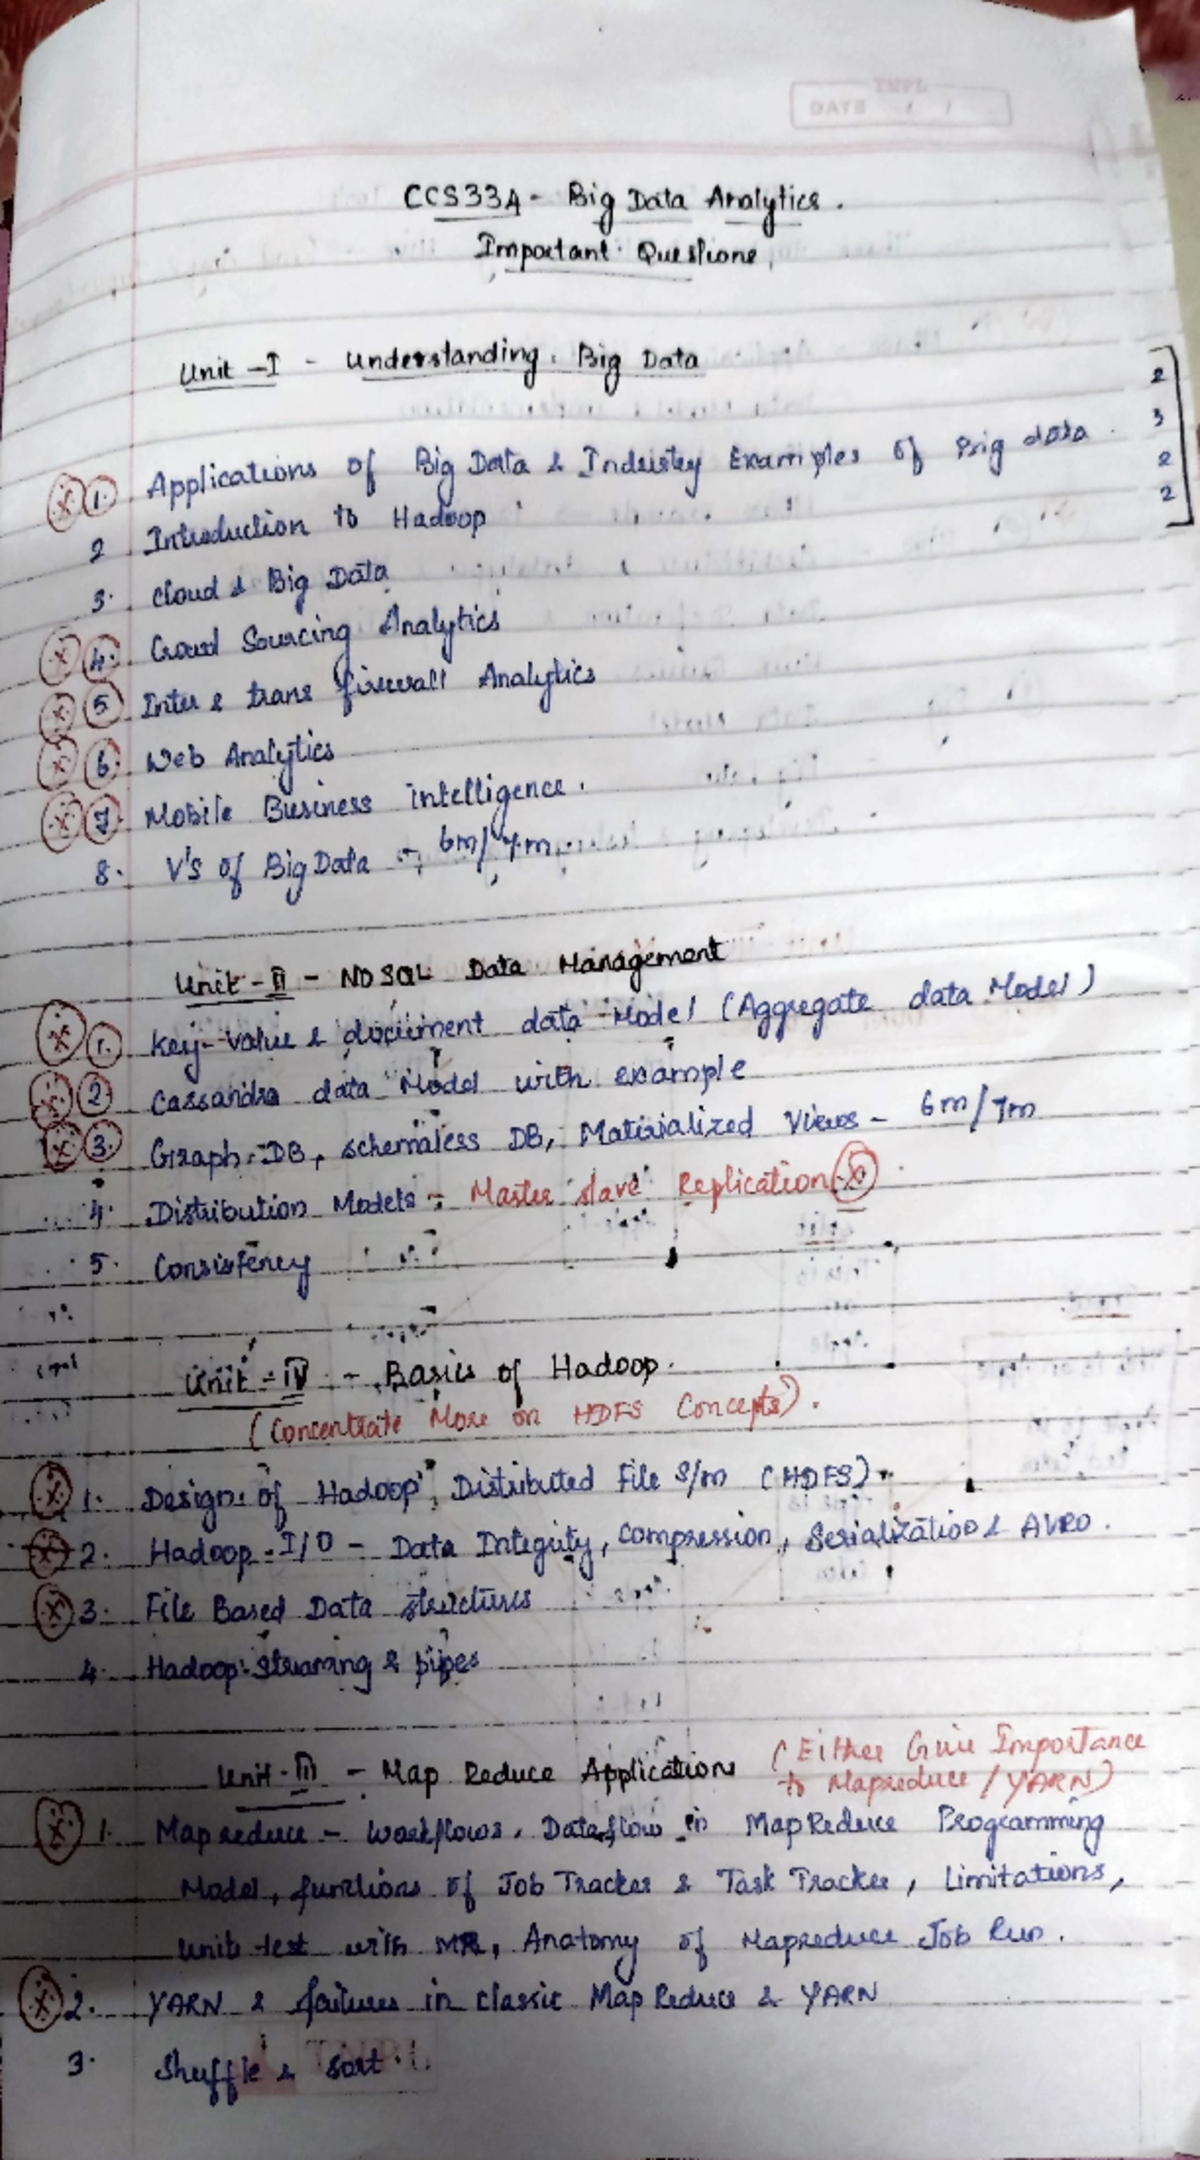 TNPL
DATE
CCS334 - Big Data Analytics.
Important Questions
Unit -I - Understanding Big Data
2
3
2
2
1. Applications of Big Data & Industry Examples of Big data.
2 Introduction to Hadoop
3. cloud & Big Data
4. Crowd Sourcing Analytics
5 Inter & trans firewall Analytics
6. Web Analytics
7. Mobile Business intelligence.
8. V's of Big Data - 6m/7m
Unit - II - NOSQL Data Management
1. Key-Value & document data Model (Aggregate data Model)
2 Cassandra data Model with example
3. Graph DB, schemaless DB, Matirialized Views - 6m/7m
4. Distribution Models - Master slave Replication
5. Consistency
Unit - IV - Basics of Hadoop.
(Concentrate More on HDFS Concepts).
1. Design of Hadoop, Distributed File S/m (HDFS)
2. Hadoop I/O - Data Integrity, compression, Serialization & AVRO.
3. File Based Data structures
4. Hadoop streaming & pipes
Unit - III - Map Reduce Applications (Either Give Importance
to Mapreduce / YARN)
1. Mapreduce - Workflows, Dataflow in MapReduce Programming
Model, functions of Job Tracker & Task Tracker, Limitations,
Unit test with MR, Anatomy of Mapreduce Job Run.
2. YARN & failures in classic Map Reduce & YARN
3. Shuffle & sort.
TNPL